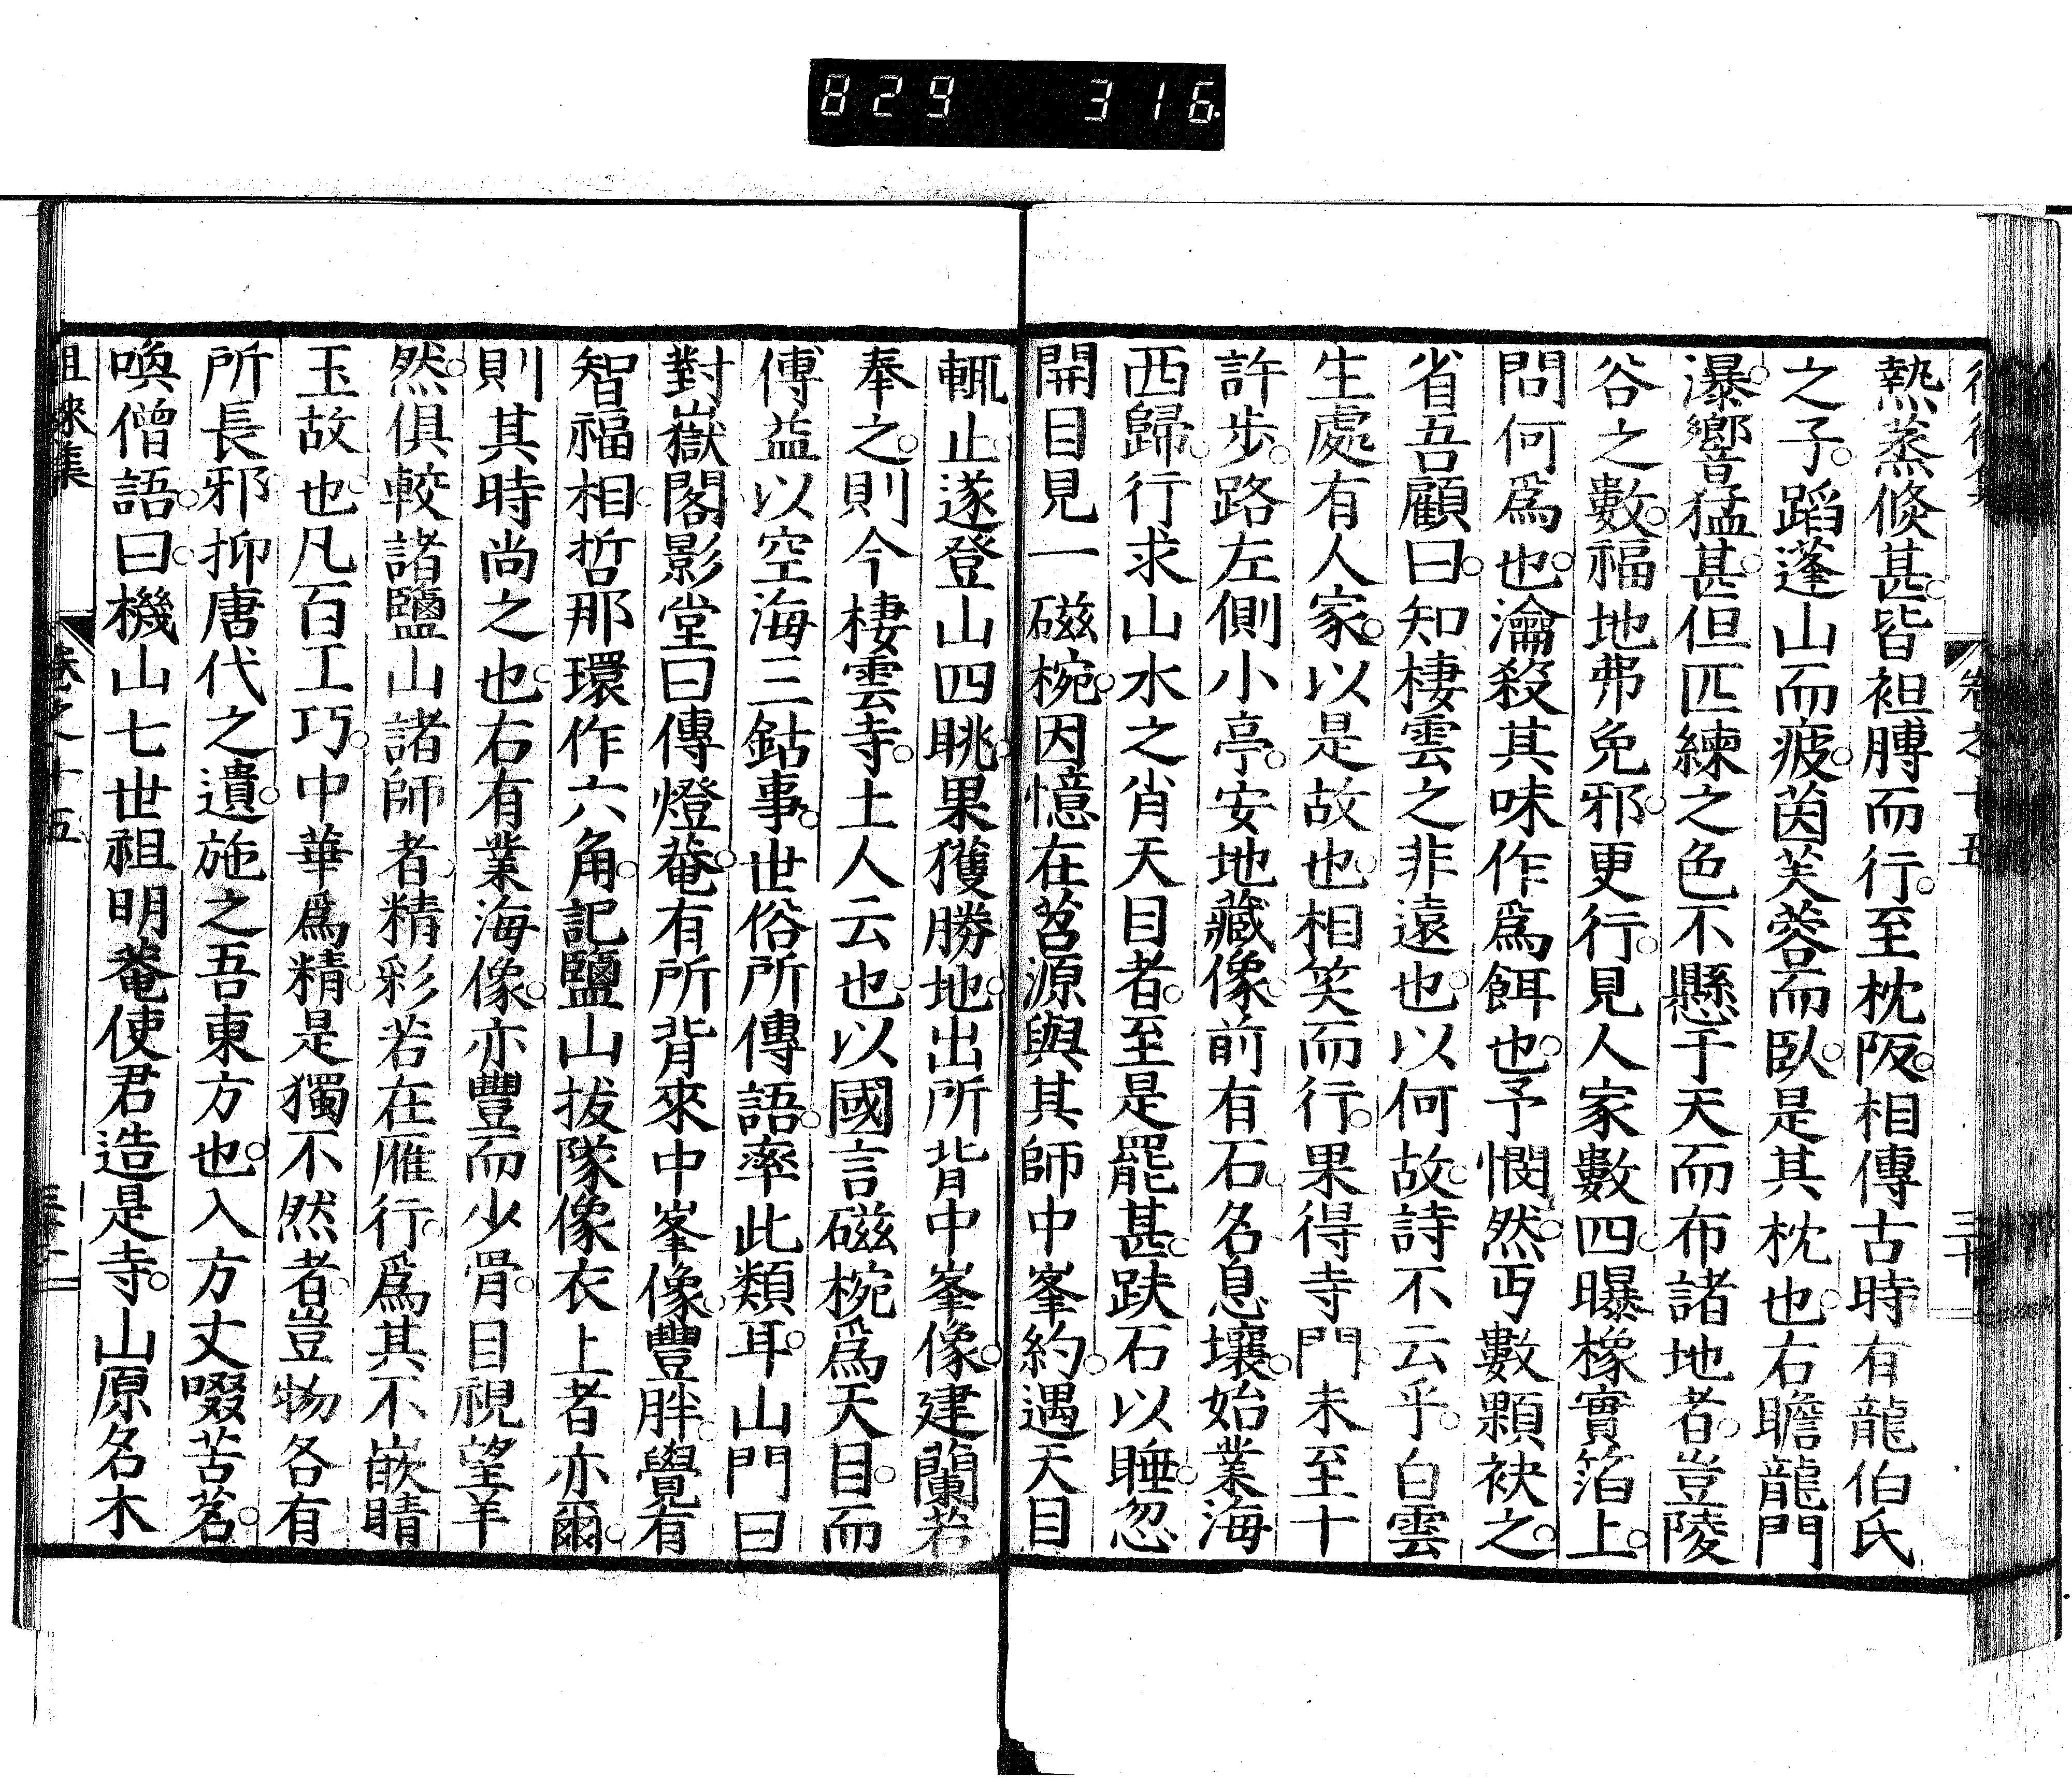 829 316
熱蒸倏甚。皆袒膊而行。至枕阪。相傳古時有龍伯氏
之子。蹈蓬山而疲。茵芙蓉而臥。是其枕也。右瞻龍門
瀑。響猛甚。但匹練之色不懸于天而布諸地者。豈陵
谷之數。福地弗免邪。更行。見人家數四。曝橡實箔上。
問何爲也。瀹殺其味作爲餌也。予憫然。丐數顆袂之。
省吾顧曰。知棲雲之非遠也。以何故。詩不云乎。白雲
生處有人家。以是故也。相笑而行。果得寺門。未至十
許步。路左側小亭。安地藏像。前有石。名息壤。始業海
西歸。行求山水之肖天目者。至是罷甚。趺石以睡。忽
開目見一磁椀。因憶在苕源與其師中峯約。遇天目
輒止。遂登山四眺。果獲勝地。出所背中峯像。建蘭若
奉之。則今棲雲寺。土人云也。以國言磁椀爲天目。而
傅益以空海三鈷事。世俗所傳語。率此類耳。山門曰
對嶽閣。影堂曰傳燈菴。有所背來中峯像。豐胖。覺有
智福相。哲那環作六角。記鹽山拔隊像衣上者亦爾。
則其時尚之也。右有業海像。亦豐而少骨。目視望羊
然。俱較諸鹽山諸師者。精彩若在雁行。爲其不嵌睛
玉故也。凡百工巧。中華爲精。是獨不然者。豈物各有
所長邪。抑唐代之遺。施之吾東方也。入方丈啜苦茗。
喚僧語。曰。機山七世祖明菴使君造是寺。山原名木
徂徠集 卷之十五